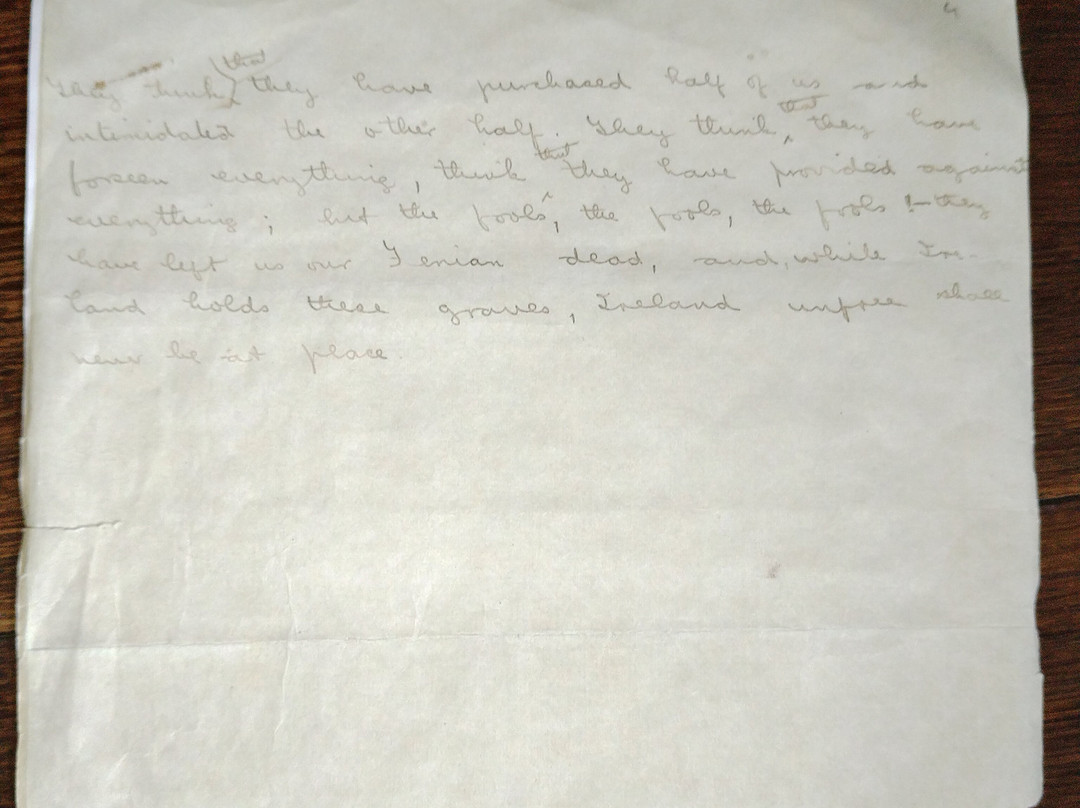 4
They think that they have purchased half of us and
intimidated the other half. They think that they have
foreseen everything, think that they have provided against
everything; but the fools, the fools, the fools!—they
have left us our Fenian dead, and, while Ire-
land holds these graves, Ireland unfree shall
never be at peace.